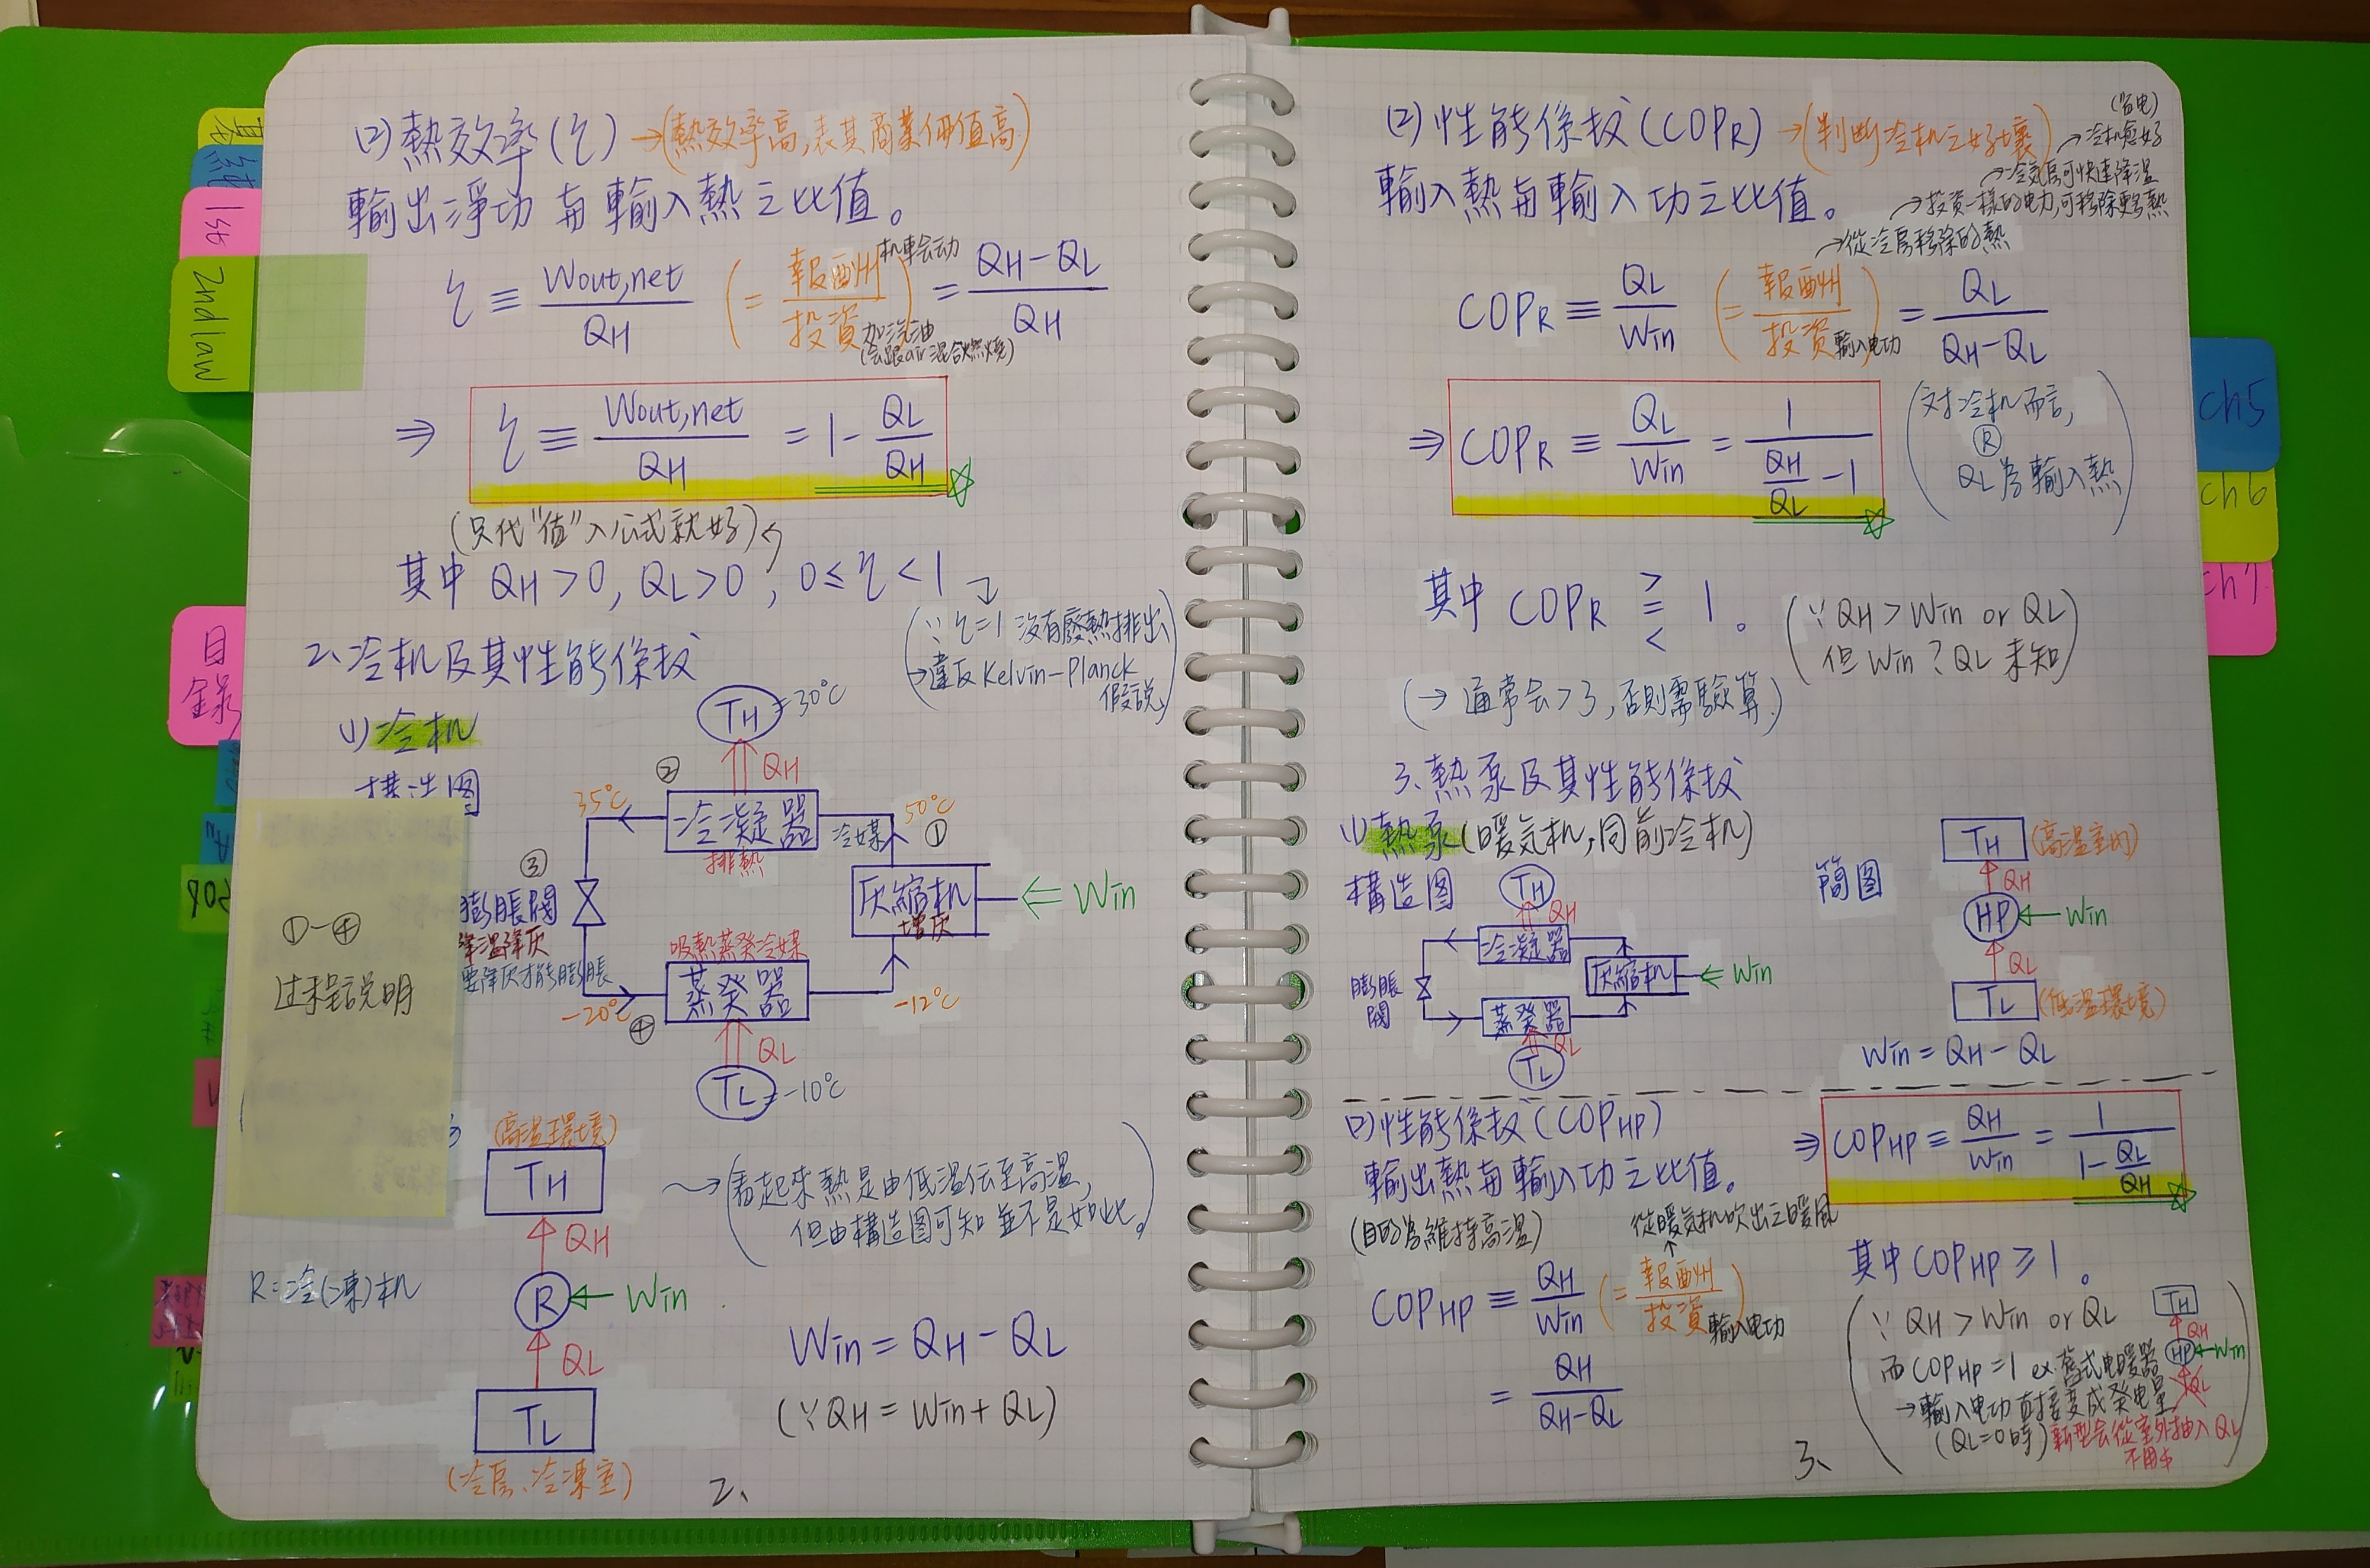 (2)熱效率(η) →(熱效率高,表其商業価值高)
輸出淨功與輸入熱之比值。
η ≡ Wout,net / QH (= 報酬 / 投資) = QH-QL / QH
机車会动
加汽油
(会跟air混合燃燒)
⇒ η ≡ Wout,net / QH = 1 - QL / QH
(只代"值"入公式就好)
其中 QH>0, QL>0, 0≤η<1
(∵η=1 沒有廢熱排出
→違反Kelvin-Planck
假説)
2、冷机及其性能係数
(1)冷机
構造图
TH =30℃
② QH
35℃ 冷凝器 50℃
排熱 冷媒 ①
③
膨脹閥
降温降压
要降压才能膨脹
压縮机 ⇐ Win
增压
吸熱蒸発冷媒
蒸発器
-20℃ ④ -12℃
QL
TL =-10℃
①-④
过程説明
(高温環境)
TH
→(看起來熱是由低温伝至高温,
但由構造图可知並不是如此。)
QH
R:冷(凍)机
R ← Win
QL
TL
(冷房、冷凍室)
Win = QH - QL
(∵QH = Win + QL)
2、
(2)性能係数(COPR) →(判断冷机之好壞)
(省电)
→冷机愈好
→冷気房可快速降温
→投資一樣的电力,可移除更多熱
→從冷房移除的熱
輸入熱與輸入功之比值。
COPR ≡ QL / Win (= 報酬 / 投資) = QL / QH-QL
輸入电功
⇒ COPR ≡ QL / Win = 1 / (QH / QL - 1)
(对冷机而言,
Ⓡ
QL為輸入熱)
其中 COPR ≥< 1。
(∵QH > Win or QL
但 Win ? QL 未知)
(→ 通常会>3,否則需驗算.)
3、熱泵及其性能係数
(1)熱泵(暖気机,同前冷机)
構造图
TH
QH
冷凝器
膨脹
閥
压縮机 ⇐ Win
蒸発器
QL
TL
簡图
TH (高温室内)
QH
HP ← Win
QL
TL (低温環境)
Win = QH - QL
(2)性能係数(COPHP)
輸出熱與輸入功之比值。
(目的為維持高温)
從暖気机吹出之暖風
COPHP ≡ QH / Win (= 報酬 / 投資)
輸入电功
= QH / QH-QL
⇒ COPHP ≡ QH / Win = 1 / (1 - QL / QH)
其中COPHP ≥ 1。
(∵ QH > Win or QL
而COPHP = 1 ex.舊式电暖器
→輸入电功直接変成発电量
(QL=0時)新型会從室外抽入QL
不用本
TH
QH
HP ← Win
QL
3、
目
錄
1st
2nd law
ch5
ch6
ch7.